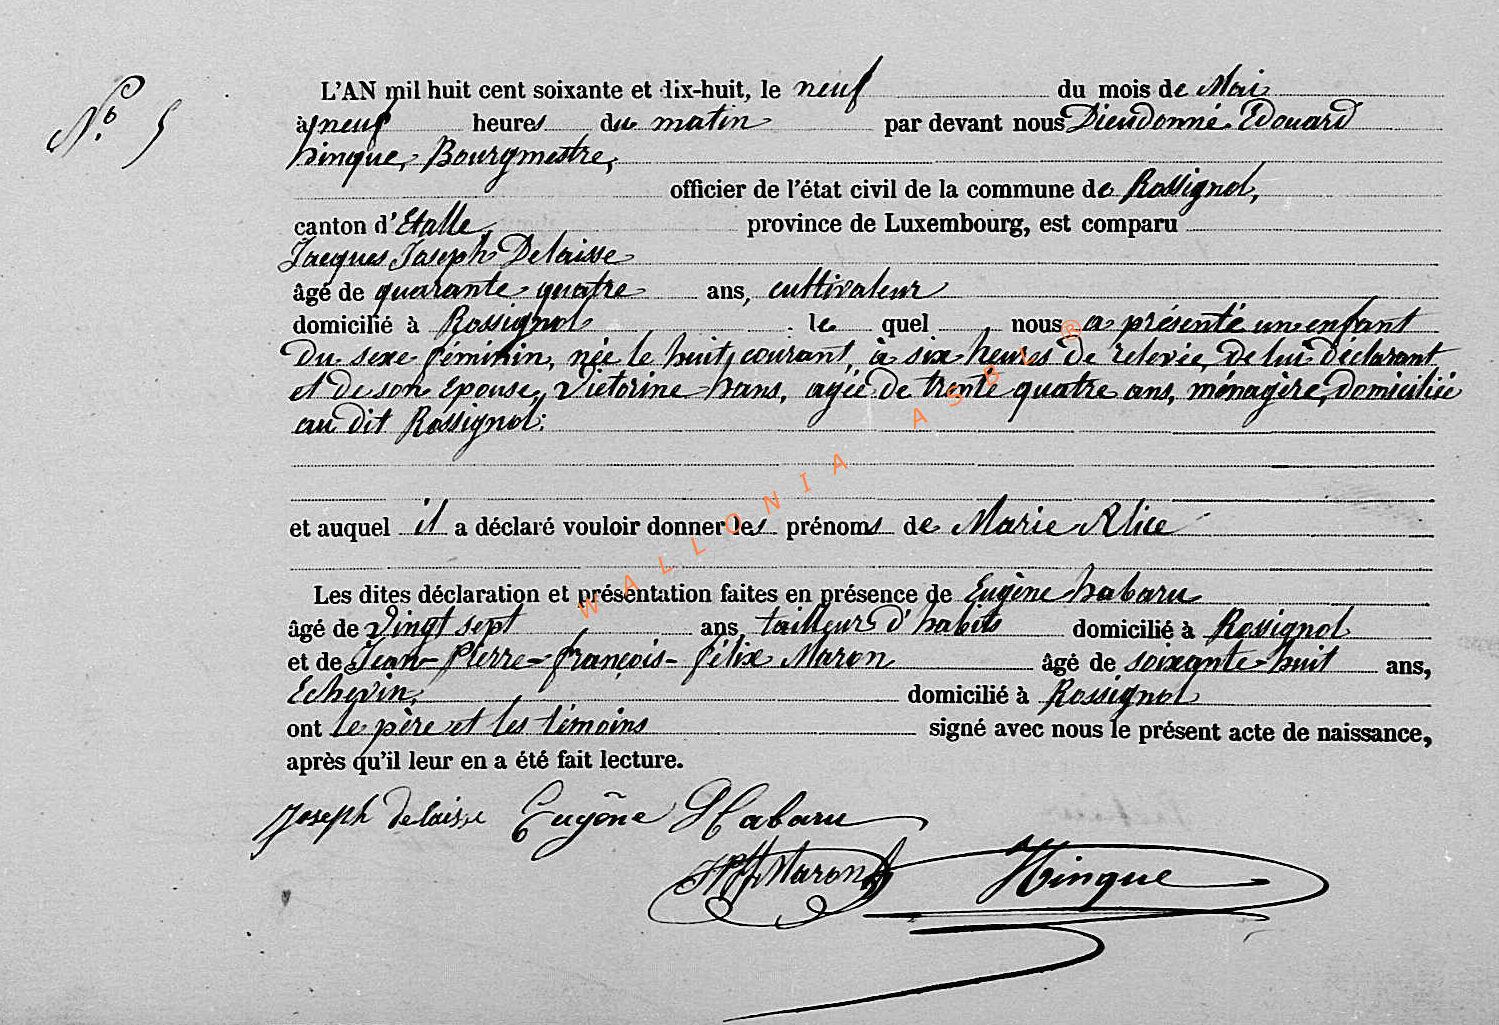 Nº 5
L'AN mil huit cent soixante et dix-huit, le neuf du mois de Mai
à neuf heures du matin par devant nous Dieudonné Edouard
hinque, Bourgmestre,
officier de l'état civil de la commune de Rossignol,
canton d'Etalle, province de Luxembourg, est comparu
Jacques Joseph Delaisse
âgé de quarante quatre ans, cultivateur
domicilié à Rossignol le quel nous a présenté un enfant
du sexe féminin, née le huit courant, à six heures de relevée, de lui déclarant
et de son Epouse, Victorine hans, agée de trente quatre ans, ménagère, domiciliée
au dit Rossignol.
et auquel il a déclaré vouloir donner les prénoms de Marie Alice
Les dites déclaration et présentation faites en présence de Eugène habaru
âgé de vingt sept ans, tailleur d'habits domicilié à Rossignol
et de Jean-Pierre-françois-félix Maron âgé de soixante-huit ans,
Echevin, domicilié à Rossignol
ont le père et les témoins signé avec nous le présent acte de naissance,
après qu'il leur en a été fait lecture.
Joseph delaisse Eugène Habaru
Maron Hinque
WALLONIA ASBL ®